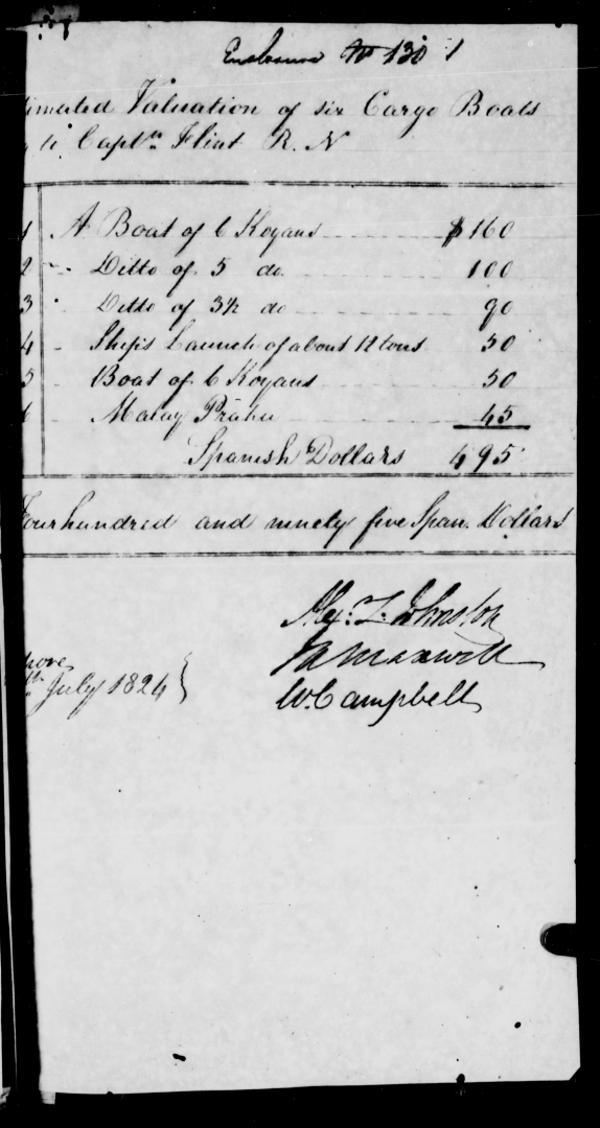 Enclosure No 130 1
timated Valuation of six Cargo Boats
g to Captn Flint R. N
1 A Boat of 6 Koyans $ 160
2 " Ditto of 5 do 100
3 " Ditto of 3½ do 90
4 - Ships Launch of about 12 tons 50
5 - Boat of 6 Koyans 50
6 - Malay Prahu 45
Spanish Dollars 495
Four hundred and ninety five Span. Dollars
Alex: L. Johnston
Maxwell
pore
th July 1824
W. Campbell